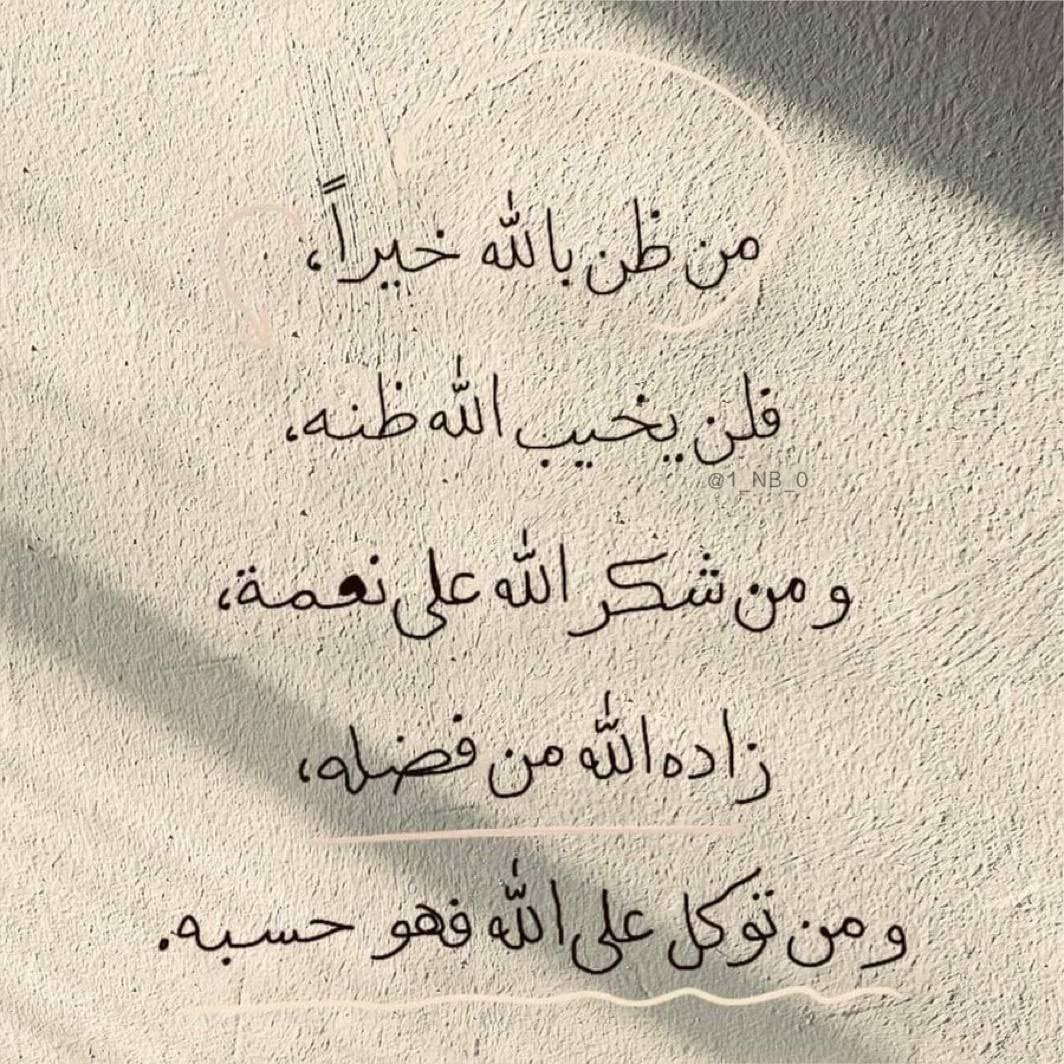 من ظن بالله خيراً،
فلن يخيب الله ظنه،
@1_NB_0
و من شكر الله على نعمة،
زاده الله من فضله،
و من توكل على الله فهو حسبه.